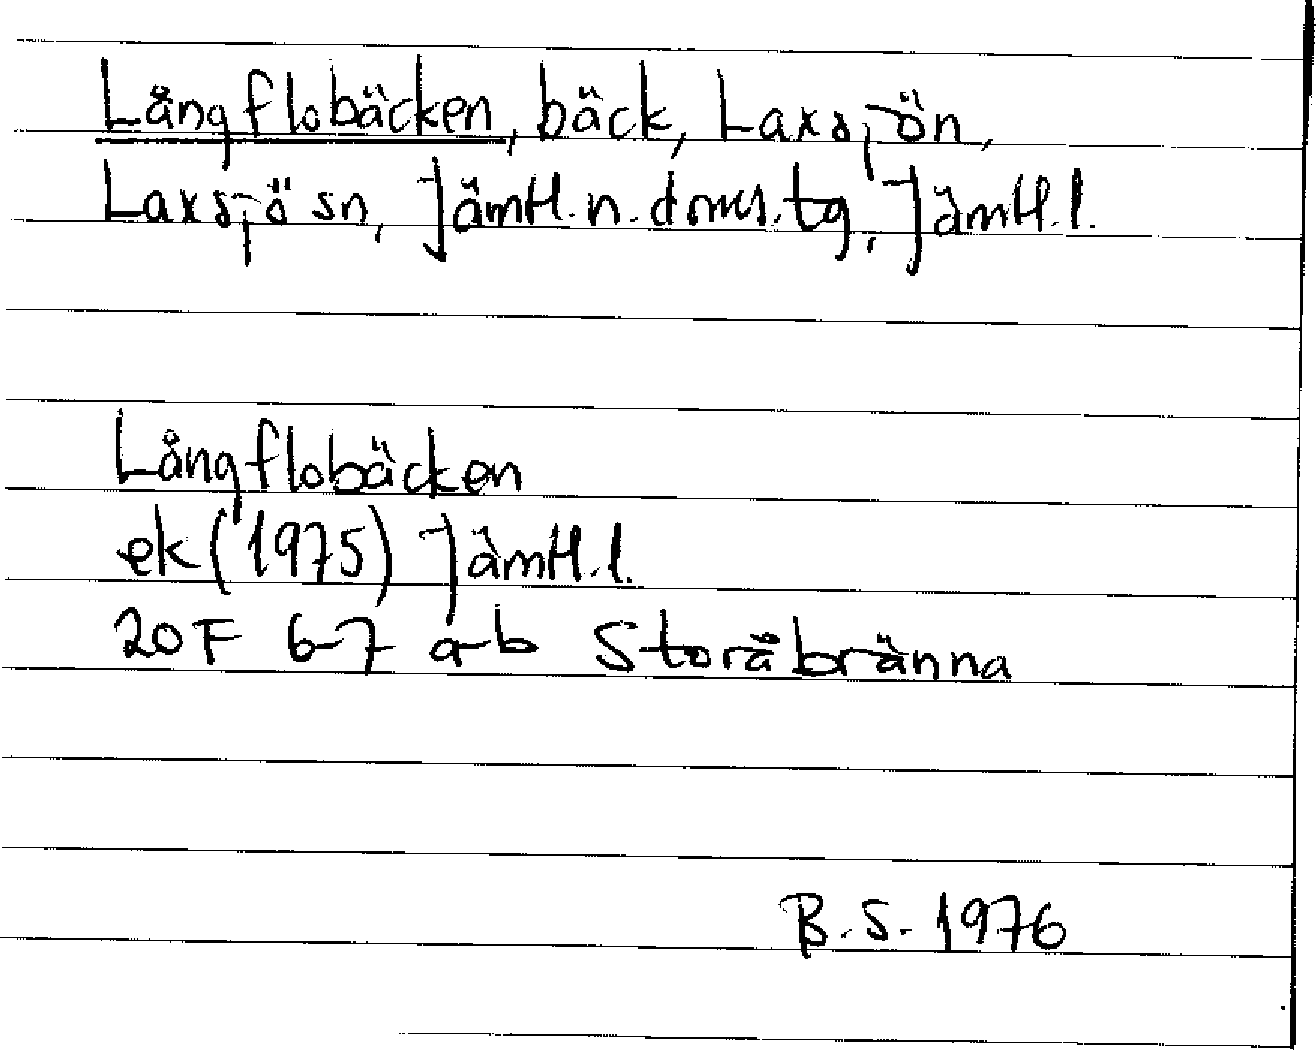 Långflobäcken, bäck, Laxsjön,
Laxsjö sn, Jämtl. n. doms. tg, Jämtl. l.
Långflobäcken
ek (1975) Jämtl. l.
20F 6-7 a-b Storåbränna
B.S. 1976